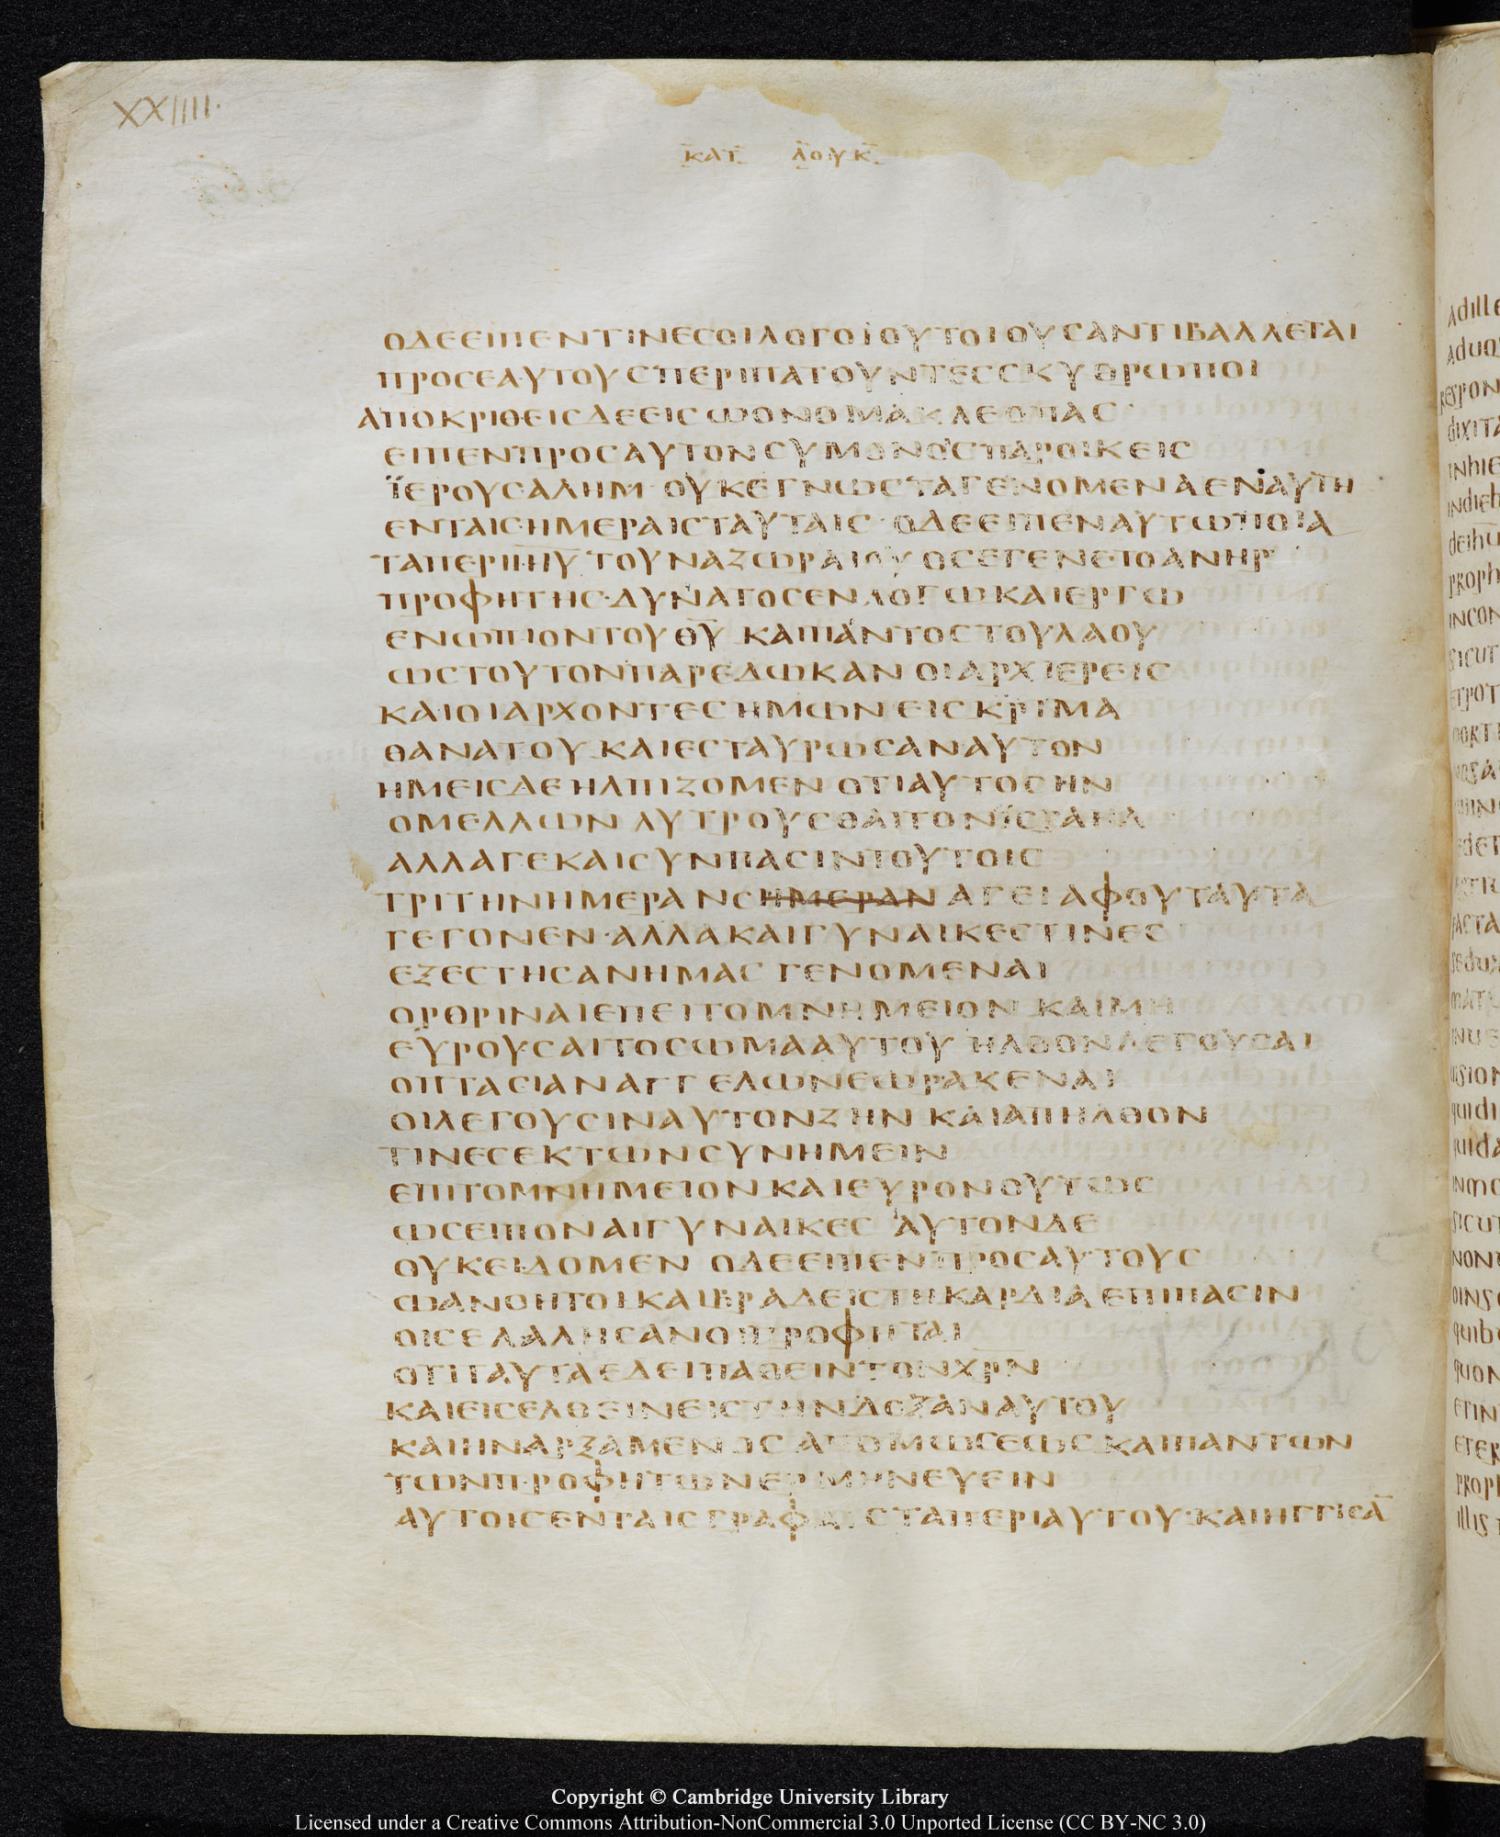 XXIIII·
ΚΑΤ ΛΟΥΚ
ΟΔΕΕΙΠΕΝΤΙΝΕCΟΙΛΟΓΟΙΟΥΤΟΙΟΥCΑΝΤΙΒΑΛΛΕΤΑΙ
ΠΡΟCΕΑΥΤΟΥCΠΕΡΙΠΑΤΟΥΝΤΕCCΚΥΘΡΩΠΟΙ
ΑΠΟΚΡΙΘΕΙCΔΕΕΙCΩΟΝΟΜΑΚΛΕΟΠΑC
ΕΙΠΕΝΠΡΟCΑΥΤΟΝCΥΜΟΝΟCΠΑΡΟΙΚΕΙC
ΪΕΡΟΥCΑΛΗΜ ΟΥΚΕΓΝΩCΤΑΓΕΝΟΜΕΝΑΕΝΑΥΤΗ
ΕΝΤΑΙCΗΜΕΡΑΙCΤΑΥΤΑΙC · ΟΔΕΕΙΠΕΝΑΥΤΩΠΟΙΑ
ΤΑΠΕΡΙΙΗΥ̅ ΤΟΥΝΑΖΩΡΑΙΟΥ ΟCΕΓΕΝΕΤΟΑΝΗΡ
ΠΡΟΦΗΤΗC·ΔΥΝΑΤΟCΕΝΛΟΓΩΚΑΙΕΡΓΩ
ΕΝΩΠΙΟΝΤΟΥΘΥ̅ ΚΑΙΠΑΝΤΟCΤΟΥΛΑΟΥ
ΩCΤΟΥΤΟΝΠΑΡΕΔΩΚΑΝ ΟΙΑΡΧΙΕΡΕΙC
ΚΑΙΟΙΑΡΧΟΝΤΕCΗΜΩΝ ΕΙC ΚΡΙΜΑ
ΘΑΝΑΤΟΥ ΚΑΙΕCΤΑΥΡΩCΑΝΑΥΤΟΝ
ΗΜΕΙCΔΕ ΗΛΠΙΖΟΜΕΝ ΟΤΙΑΥΤΟCΗΝ
ΟΜΕΛΛΩΝ ΛΥΤΡΟΥCΘΑΙΤΟΝΪCΤΑΗΛ
ΑΛΛΑΓΕΚΑΙCΥΝΠΑCΙΝΤΟΥΤΟΙC
ΤΡΙΤΗΝΗΜΕΡΑΝCΗΜΕΡΑΝ ΑΓΕΙ ΑΦΟΥΤΑΥΤΑ
ΓΕΓΟΝΕΝ·ΑΛΛΑΚΑΙΓΥΝΑΙΚΕCΤΙΝΕC
ΕΞΕCΤΗCΑΝΗΜΑC ΓΕΝΟΜΕΝΑΙ
ΟΡΘΡΙΝΑΙΕΠΕΙΤΟΜΝΗΜΕΙΟΝ ΚΑΙΜΗ
ΕΥΡΟΥCΑΙΤΟCΩΜΑΑΥΤΟΥ ΗΛΘΟΝΛΕΓΟΥCΑΙ
ΟΠΤΑCΙΑΝΑΓΓΕΛΩΝΕΩΡΑΚΕΝΑΙ
ΟΙΛΕΓΟΥCΙΝΑΥΤΟΝΖΗΝ ΚΑΙΑΠΗΛΘΟΝ
ΤΙΝΕCΕΚΤΩΝCΥΝΗΜΕΙΝ
ΕΠΙΤΟΜΝΗΜΕΙΟΝΚΑΙΕΥΡΟΝΟΥΤΩC
ΩCΕΙΠΟΝΑΙΓΥΝΑΙΚΕC ΑΥΤΟΝΔΕ
ΟΥΚΕΙΔΟΜΕΝ ΟΔΕΕΙΠΕΝΠΡΟCΑΥΤΟΥC
ΩΑΝΟΗΤΟΙΚΑΙΒΡΑΔΕΙCΤΗΚΑΡΔΙΑ ΕΠΙΠΑCΙΝ
ΟΙCΕΛΑΛΗCΑΝΟΙΠΡΟΦΗΤΑΙ
ΟΤΙΤΑΥΤΑΕΔΕΙΠΑΘΕΙΝΤΟΝΧΡΝ̅
ΚΑΙΕΙCΕΛΘΕΙΝΕΙCΤΗΝΔΟΞΑΝΑΥΤΟΥ
ΚΑΙΗΝΑΡΞΑΜΕΝΟC ΑΠΟΜΩCΕΩC ΚΑΙΠΑΝΤΩΝ
ΤΩΝΠΡΟΦΗΤΩΝΕΡΜΗΝΕΥΕΙΝ
ΑΥΤΟΙCΕΝΤΑΙCΓΡΑΦΑΙCΤΑΠΕΡΙΑΥΤΟΥ·ΚΑΙΗΓΓΙCΑ̅
Copyright © Cambridge University Library
Licensed under a Creative Commons Attribution-NonCommercial 3.0 Unported License (CC BY-NC 3.0)